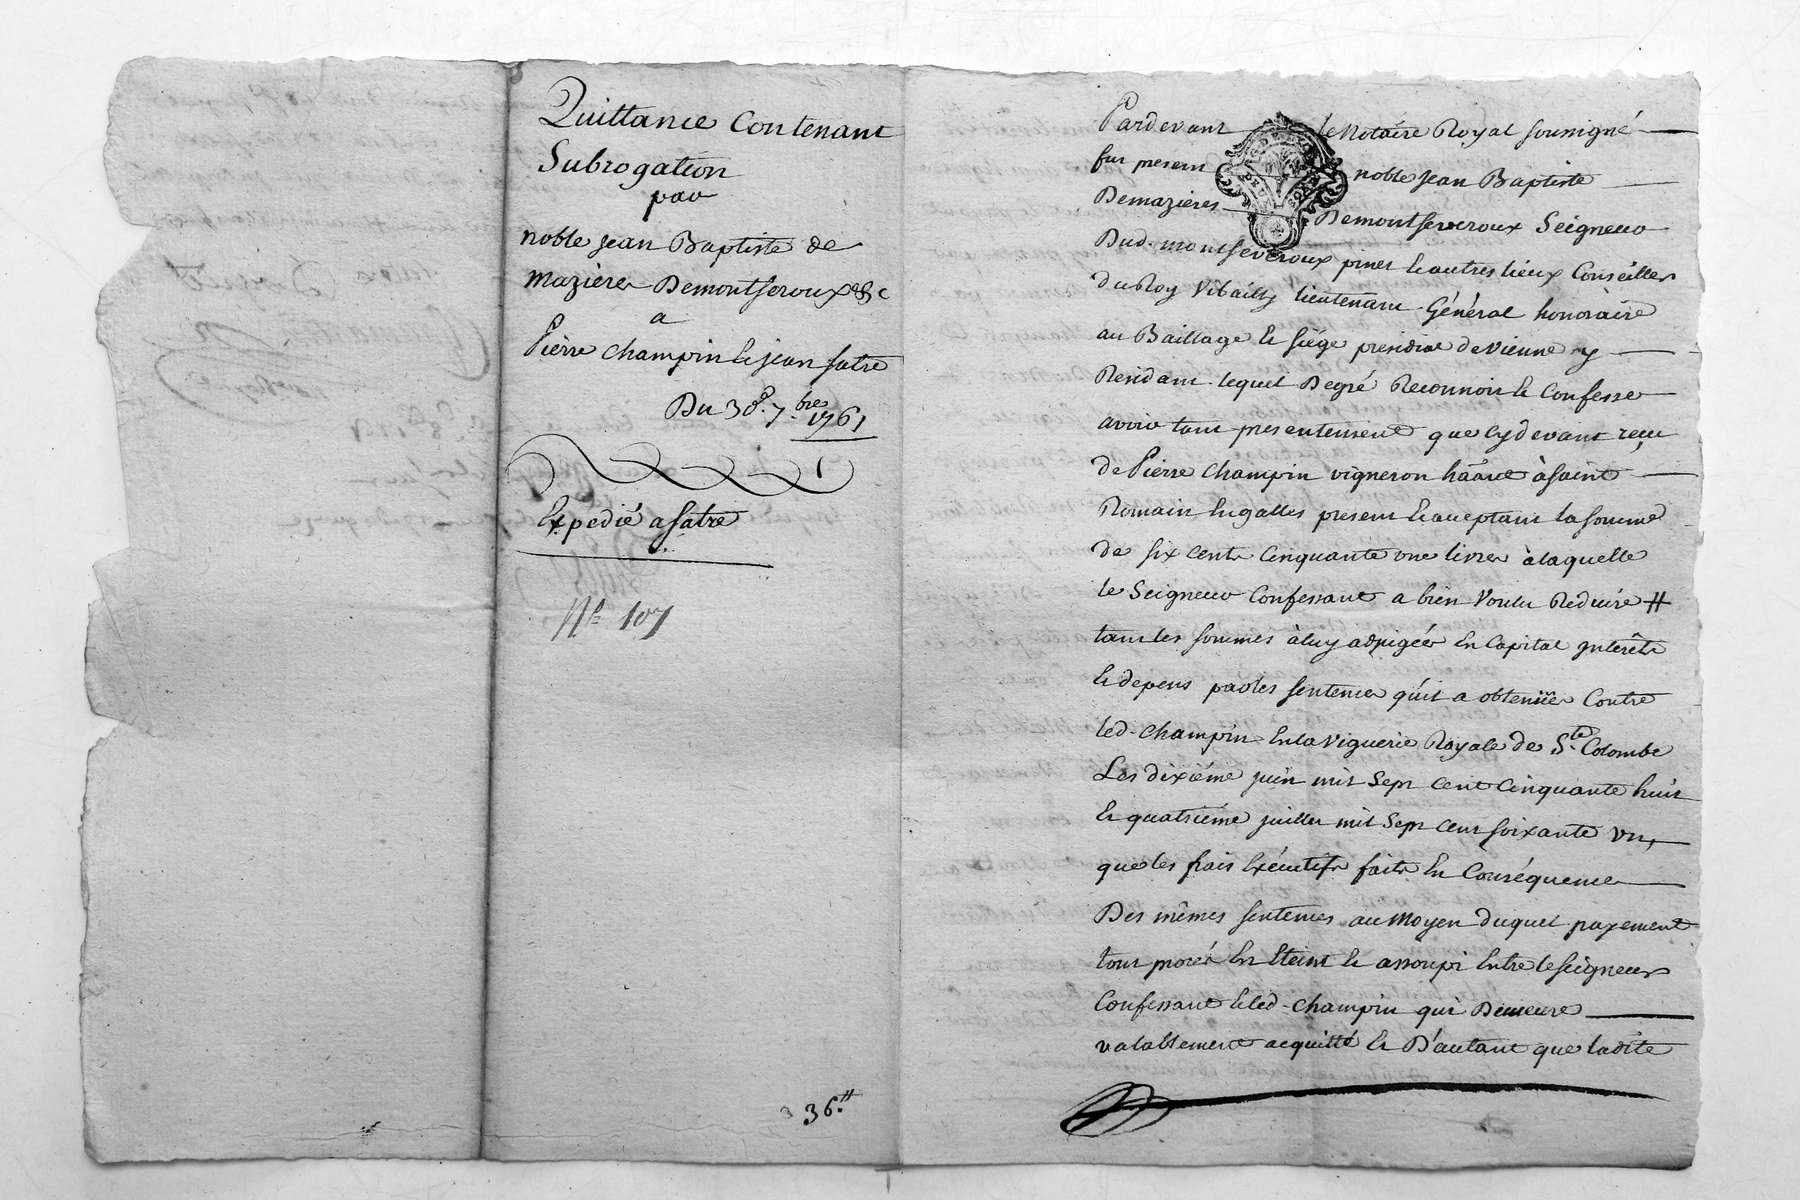 Quittance Contenant
Subrogation
par
noble jean Baptiste de
Mazieres Demontseroux &c
a
Pierre champin & jean fatre
Du 30e. 7.bre 1761
Expedié a fatre
N.o 107
36.tt
Pardevant le Notaire Royal soussigné
fut present noble Jean Baptiste
Demazieres Demontseveroux Seigneur
Dud. montseveroux & autres lieux Conseiller
du Roy Vibailly lieutenant Général honoraire
au Baillage & siége presidial de Vienne y
Residant lequel Degré Reconnoit & Confesse
avoir tant presentement que cydevant reçu
de Pierre Champin vigneron à saint
Romain En galles present & acceptant la somme
de six cents Cinquante une livres à laquelle
le Seigneur Confessant a bien Voulu Reduire
tant les sommes à luy adjugées En Capital Interêts
& depens par les sentences qu'il a obtenües Contre
led. Champin En la Viguerie Royale de S.te Colombe
Les dixiéme juin mil Sept Cent Cinquante huit
& quatriéme juillet mil Sept Cent soixante Un,
que les frais Exécutifs faits En Conséquence
Des mêmes sentences au moyen duquel payement
tout procès Est Eteint & assoupi Entre le seigneur
Confessant & led. Champin qui Demeure
valablement acquitté & D'autant que ladite